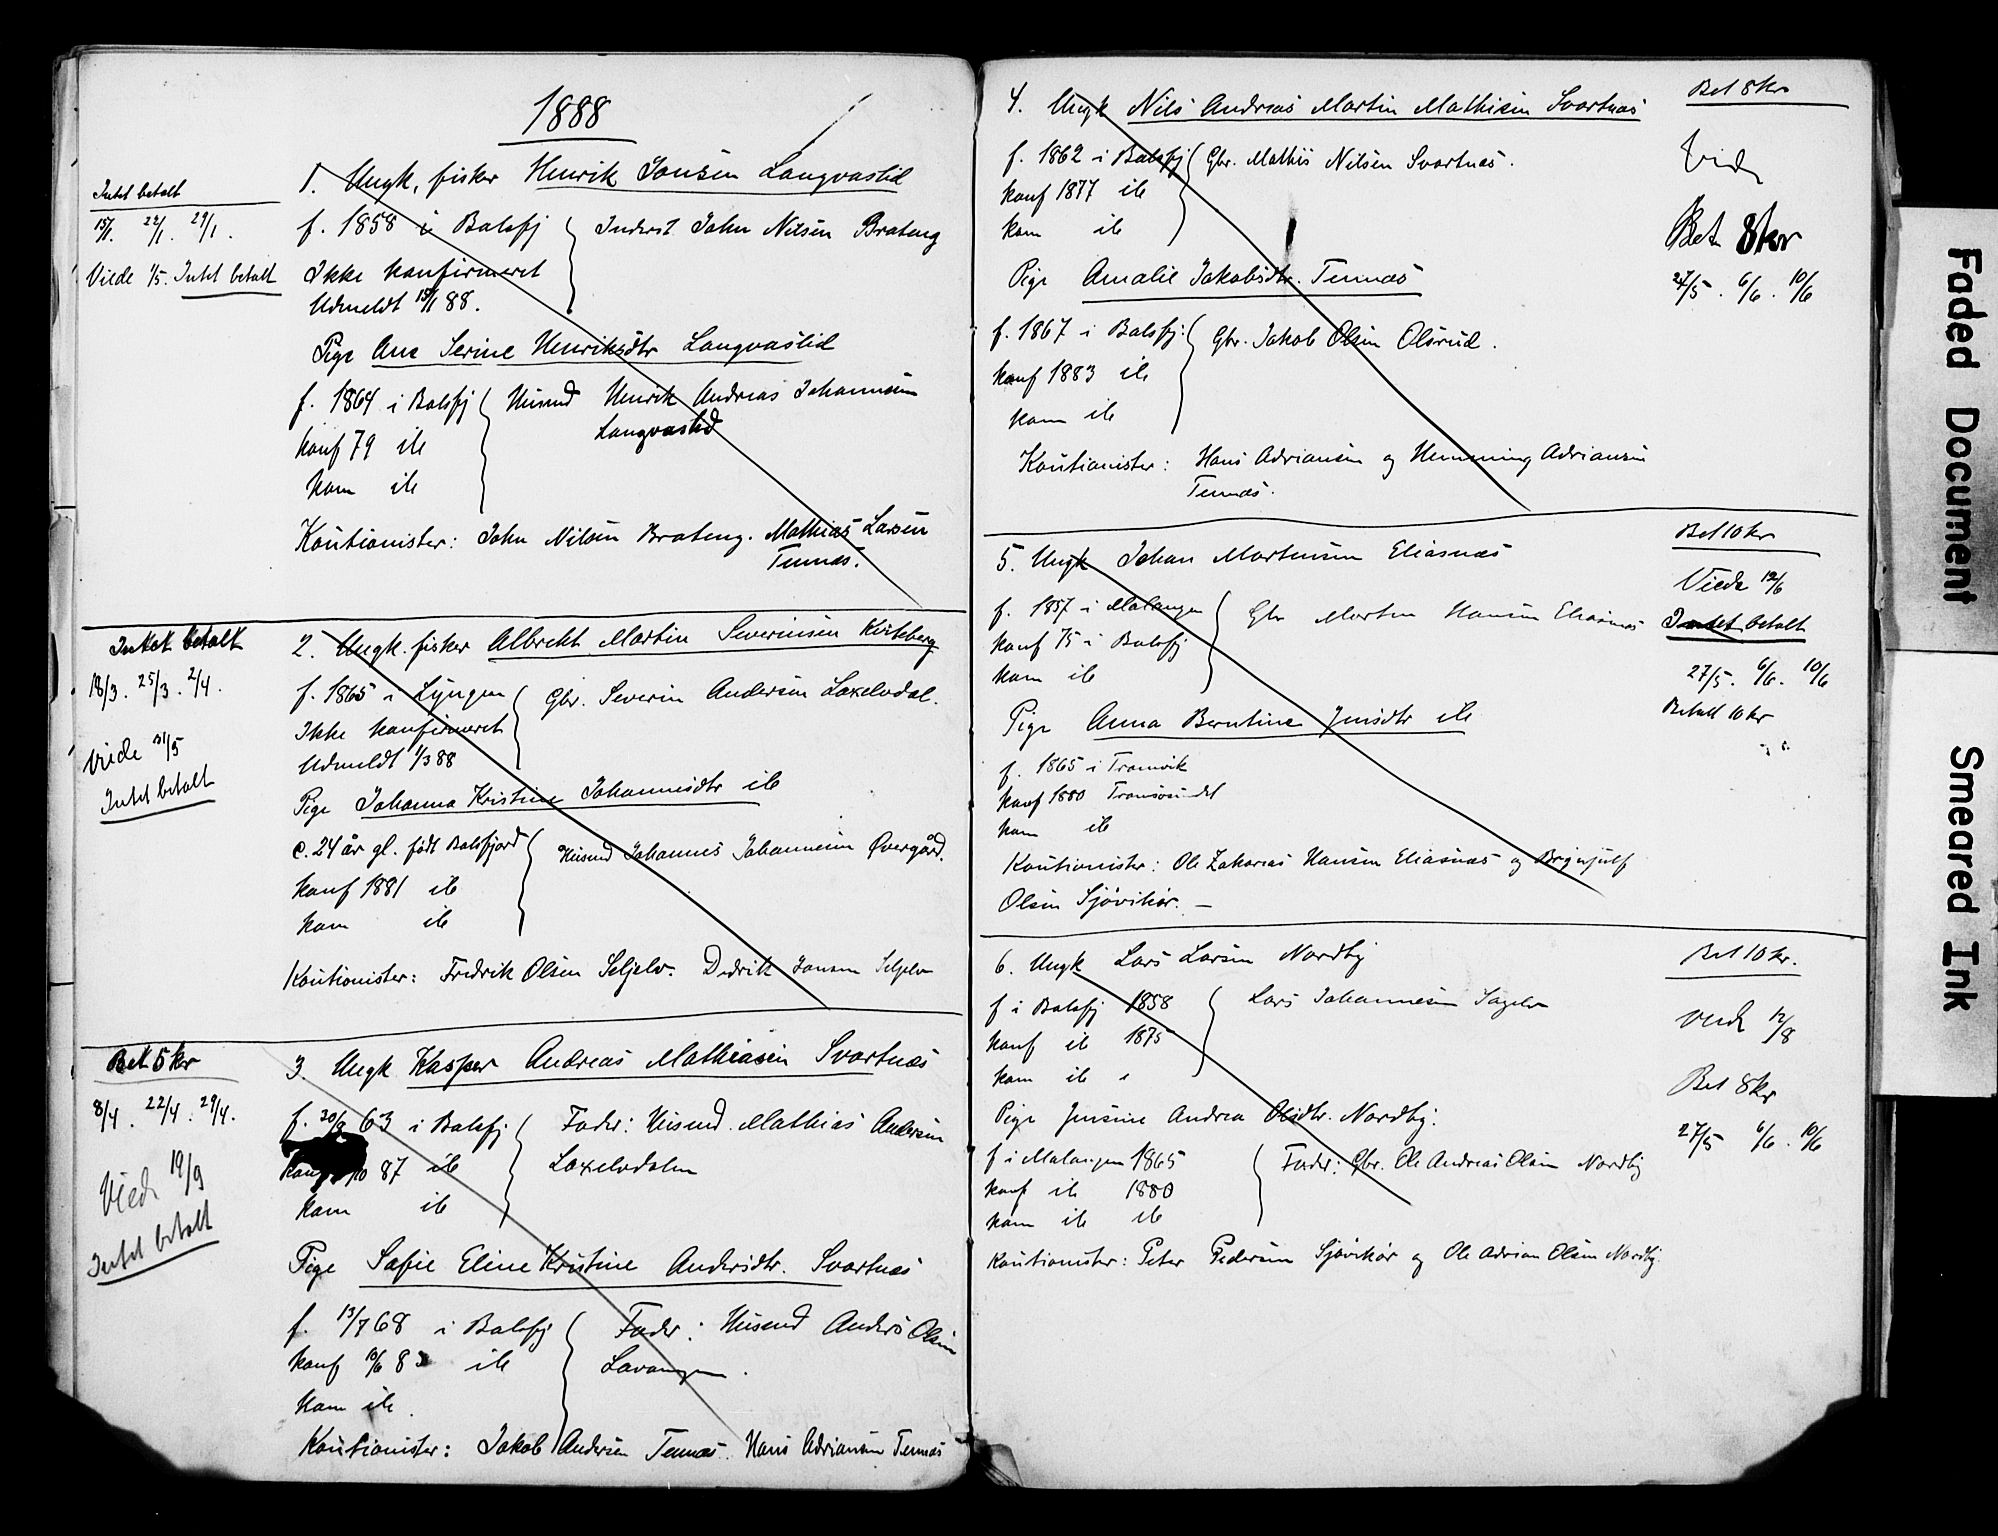 1888
Intet betalt
15/1. 22/1. 29/1.
Viede 1/5. Intet betalt
1. Ungk, fisker Henrik Jonsen Langvaslid
f. 1858 i Balsfj
Inderst John Nilsen Brateng
Ikke konfirmeret
Udmeldt 15/1 88.
Pige Ane Serine Henriksdtr Langvaslid
f. 1864 i Balsfj
Husmd Henrik Andreas Johannesen
Langvaslid
konf 79 ib
kom ib
Kautionister: John Nilsen Brateng. Mathias Larsen
Tennes.
Intet betalt
18/3. 25/3. 2/4.
Viede 31/5
Intet betalt
2. Ungk. fisker Albrekt Martin Severinsen Kirkeberg
f. 1865 i Lyngen
Gbr. Severin Andersen Laxelvdal.
Ikke konfirmeret
Udmeldt 1/3 88
Pige Johanna Kristine Johannesdtr ib
c. 24 år gl. født Balsfjord
Husmd Johannes Johannesen Øvergård.
konf 1881 ib
kom ib
Kautionister: Fredrik Olsen Seljelv. Dedrik Jonsen Seljelv
Bet 5 kr
8/4. 22/4. 29/4.
Vied 19/9
Intet betalt
3. Ungk Kasper Andreas Mathiasen Svartnæs
f. 20/9 63 i Balsfj
Fader: Husmd. Mathias Andersen
Laxelvdalen
87 ib
kom ib
Pige Sofie Eline Kristine Andersdtr. Svartnæs
f. 13/7 68 i Balsfj
Fader: Husmd Anders Olsen
konf 10/6 83 ib
Lavangen.
kom ib.
Kautionister: Jakob Andersen Tennæs. Hans Adriansen Tennæs
4. Ungk Nils Andreas Martin Mathisen Svartnæs
Bet 8 kr
f. 1862 i Balsfj
Gbr. Mathis Nilsen Svartnæs.
konf 1877 ib
kom ib
Vied
Bet 8 kr
27/5. 6/6. 10/6
Pige Amalie Jakobsdtr. Tennæs
f. 1867 i Balsfj.
Gbr. Jakob Olsen Olsrud.
konf 1883 ib
kom ib
Kautionister: Hans Adriansen og Henning Adriansen
Tennæs.
5. Ungk Johan Mortensen Eliasnæs
Bet 10 kr
Viede 12/6
Intet betalt
27/5. 6/6. 10/6
Betalt 10 kr
f. 1857 i Malangen
Gbr Morten Hansen Eliasnæs
konf 75 i Balsfj
kom ib
Pige Anna Berntine Jensdtr ib
f. 1865 i Tromvik
konf 1880 Tromsøsundet
kom ib
Kautionister: Ole Zakarias Hansen Eliasnæs og Brynjulf
Olsen Sjøvikør. —
6. Ungk Lars Larsen Nordby
Bet 10 kr.
f i Balsfj 1858
Lars Johannesen Sagelv
konf ib 1875
kom ib
Viede 12/8
Bet 8 kr
27/5 6/6. 10/6
Pige Jensine Andrea Olsdtr. Nordby.
f i Malangen 1865
Fader: Gbr. Ole Andreas Olsen Nordby
konf ib 1880
kom ib ib
Kautionister: Peter Pedersen Sjøvikør og Ole Adrian Olsen Nordby.
Faded Document
Smeared Ink